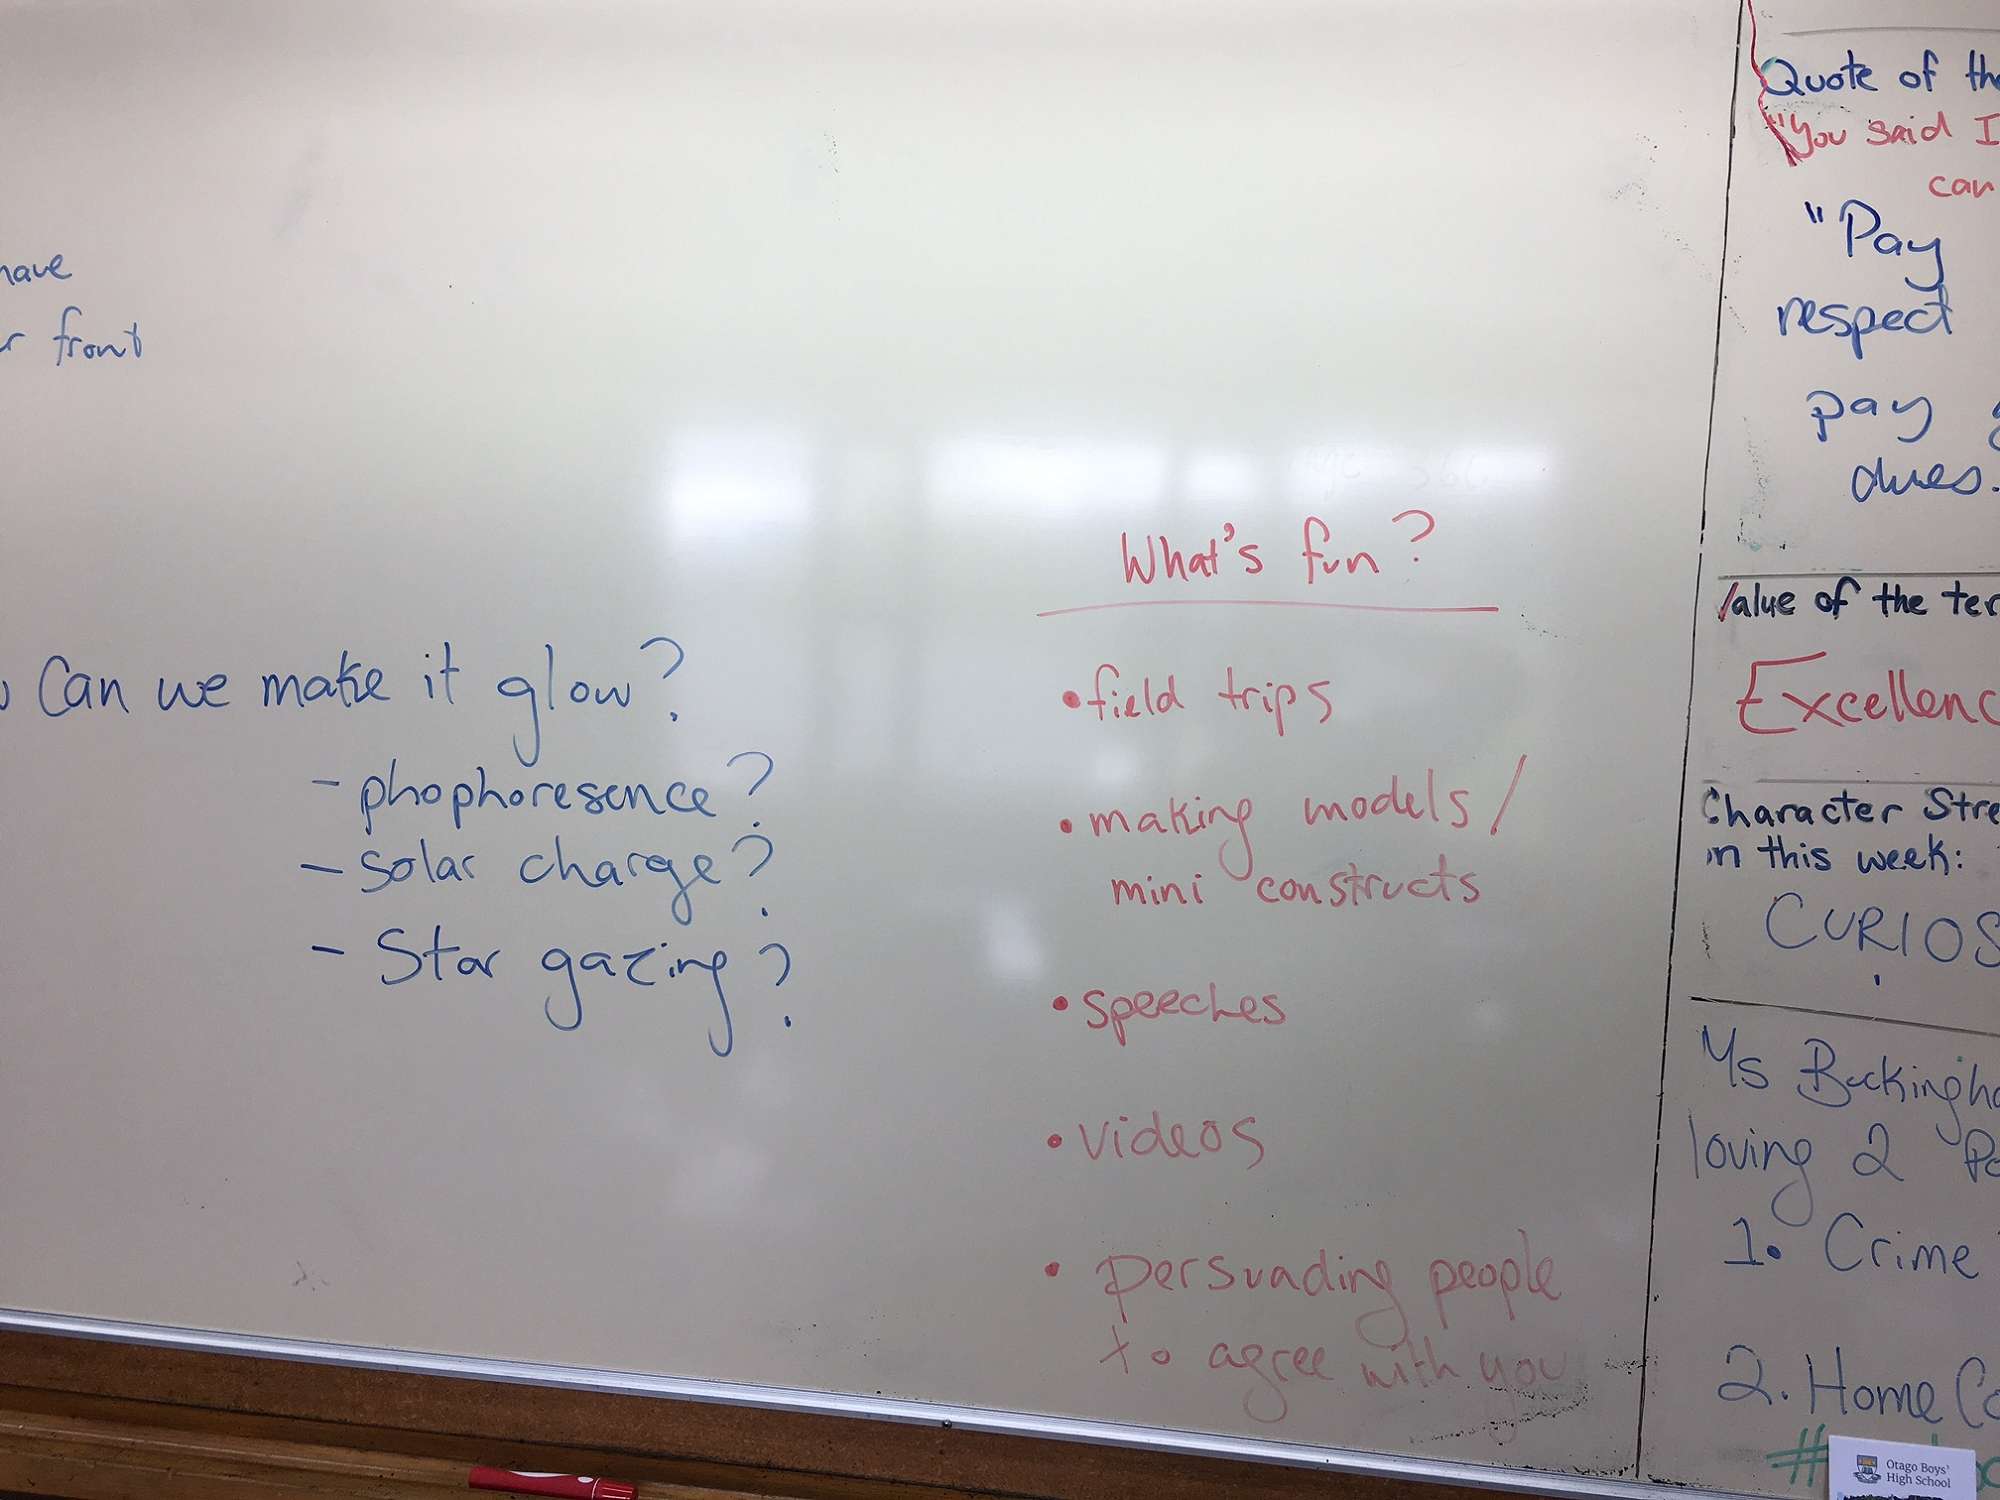 have
front
Can we make it glow?
- phophoresence?
- solar charge?
- Star gazing?
What's fun?
• field trips
• making models/
mini constructs
• speeches
• videos
• persuading people
to agree with you
Quote of the
"You said I
can
"Pay
respect
pay
dues.
Value of the ter
Excellenc
Character Stre
in this week:
CURIOS
Ms Buckingha
loving 2 Po
1. Crime
2. Home Co
#
Otago Boys'
High School